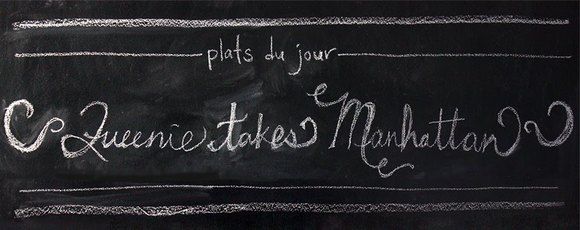 plats du jour
Queenie takes Manhattan